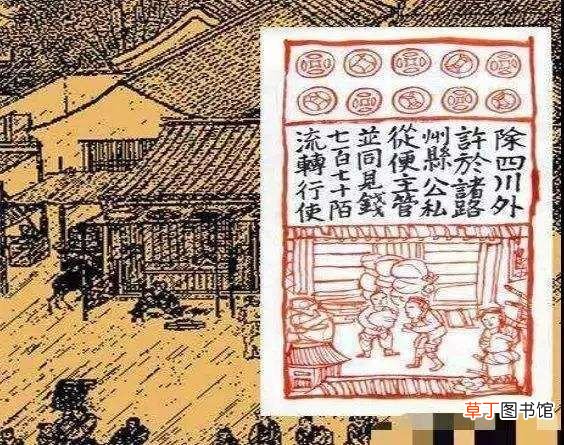 除四川外
許於諸路
州縣公私
從便主管
並同見錢
七百七十陌
流轉行使
草丁图书馆